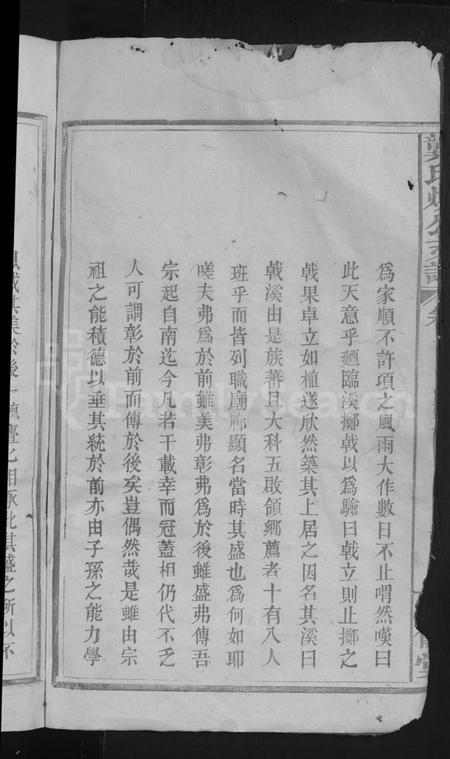 龔氏
公支譜
卷
爲家順不許項之風雨大作數日不止喟然嘆曰
此天意乎廼臨溪擲戟以爲驗曰戟立則止擲之
戟果卓立如植遂欣然築其上居之因名其溪曰
戟溪由是族蕃且大科五啟領鄉薦者十有八人
班乎而皆列職廟廊顯名當時其盛也爲何如耶
嗟夫弗爲於前雖美弗彰弗爲於後雖盛弗傳吾
宗起自南迄今凡若干載幸而冠蓋相仍代不乏
人可謂彰於前而傳於後矣豈偶然哉是雖由宗
祖之能積德以垂其統於前亦由子孫之能力學
於後
相承此其盛之所以不
FamilySearch